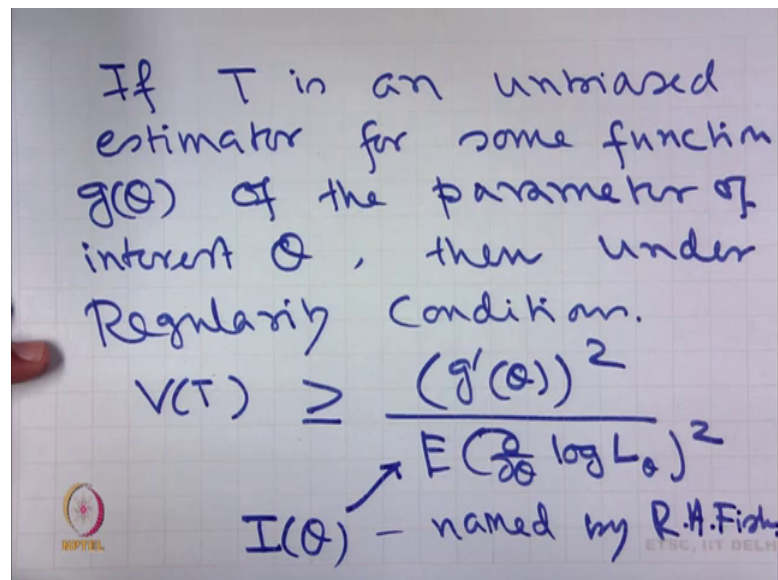 If T is an unbiased
estimator for some function
g(θ) of the parameter of
interest θ, then under
Regularity Conditions.
V(T) ≥ (g'(θ))² / E(∂/∂θ log L_θ)²
I(θ) – named by R.A. Fish
NPTEL
ETSC, IIT DELH